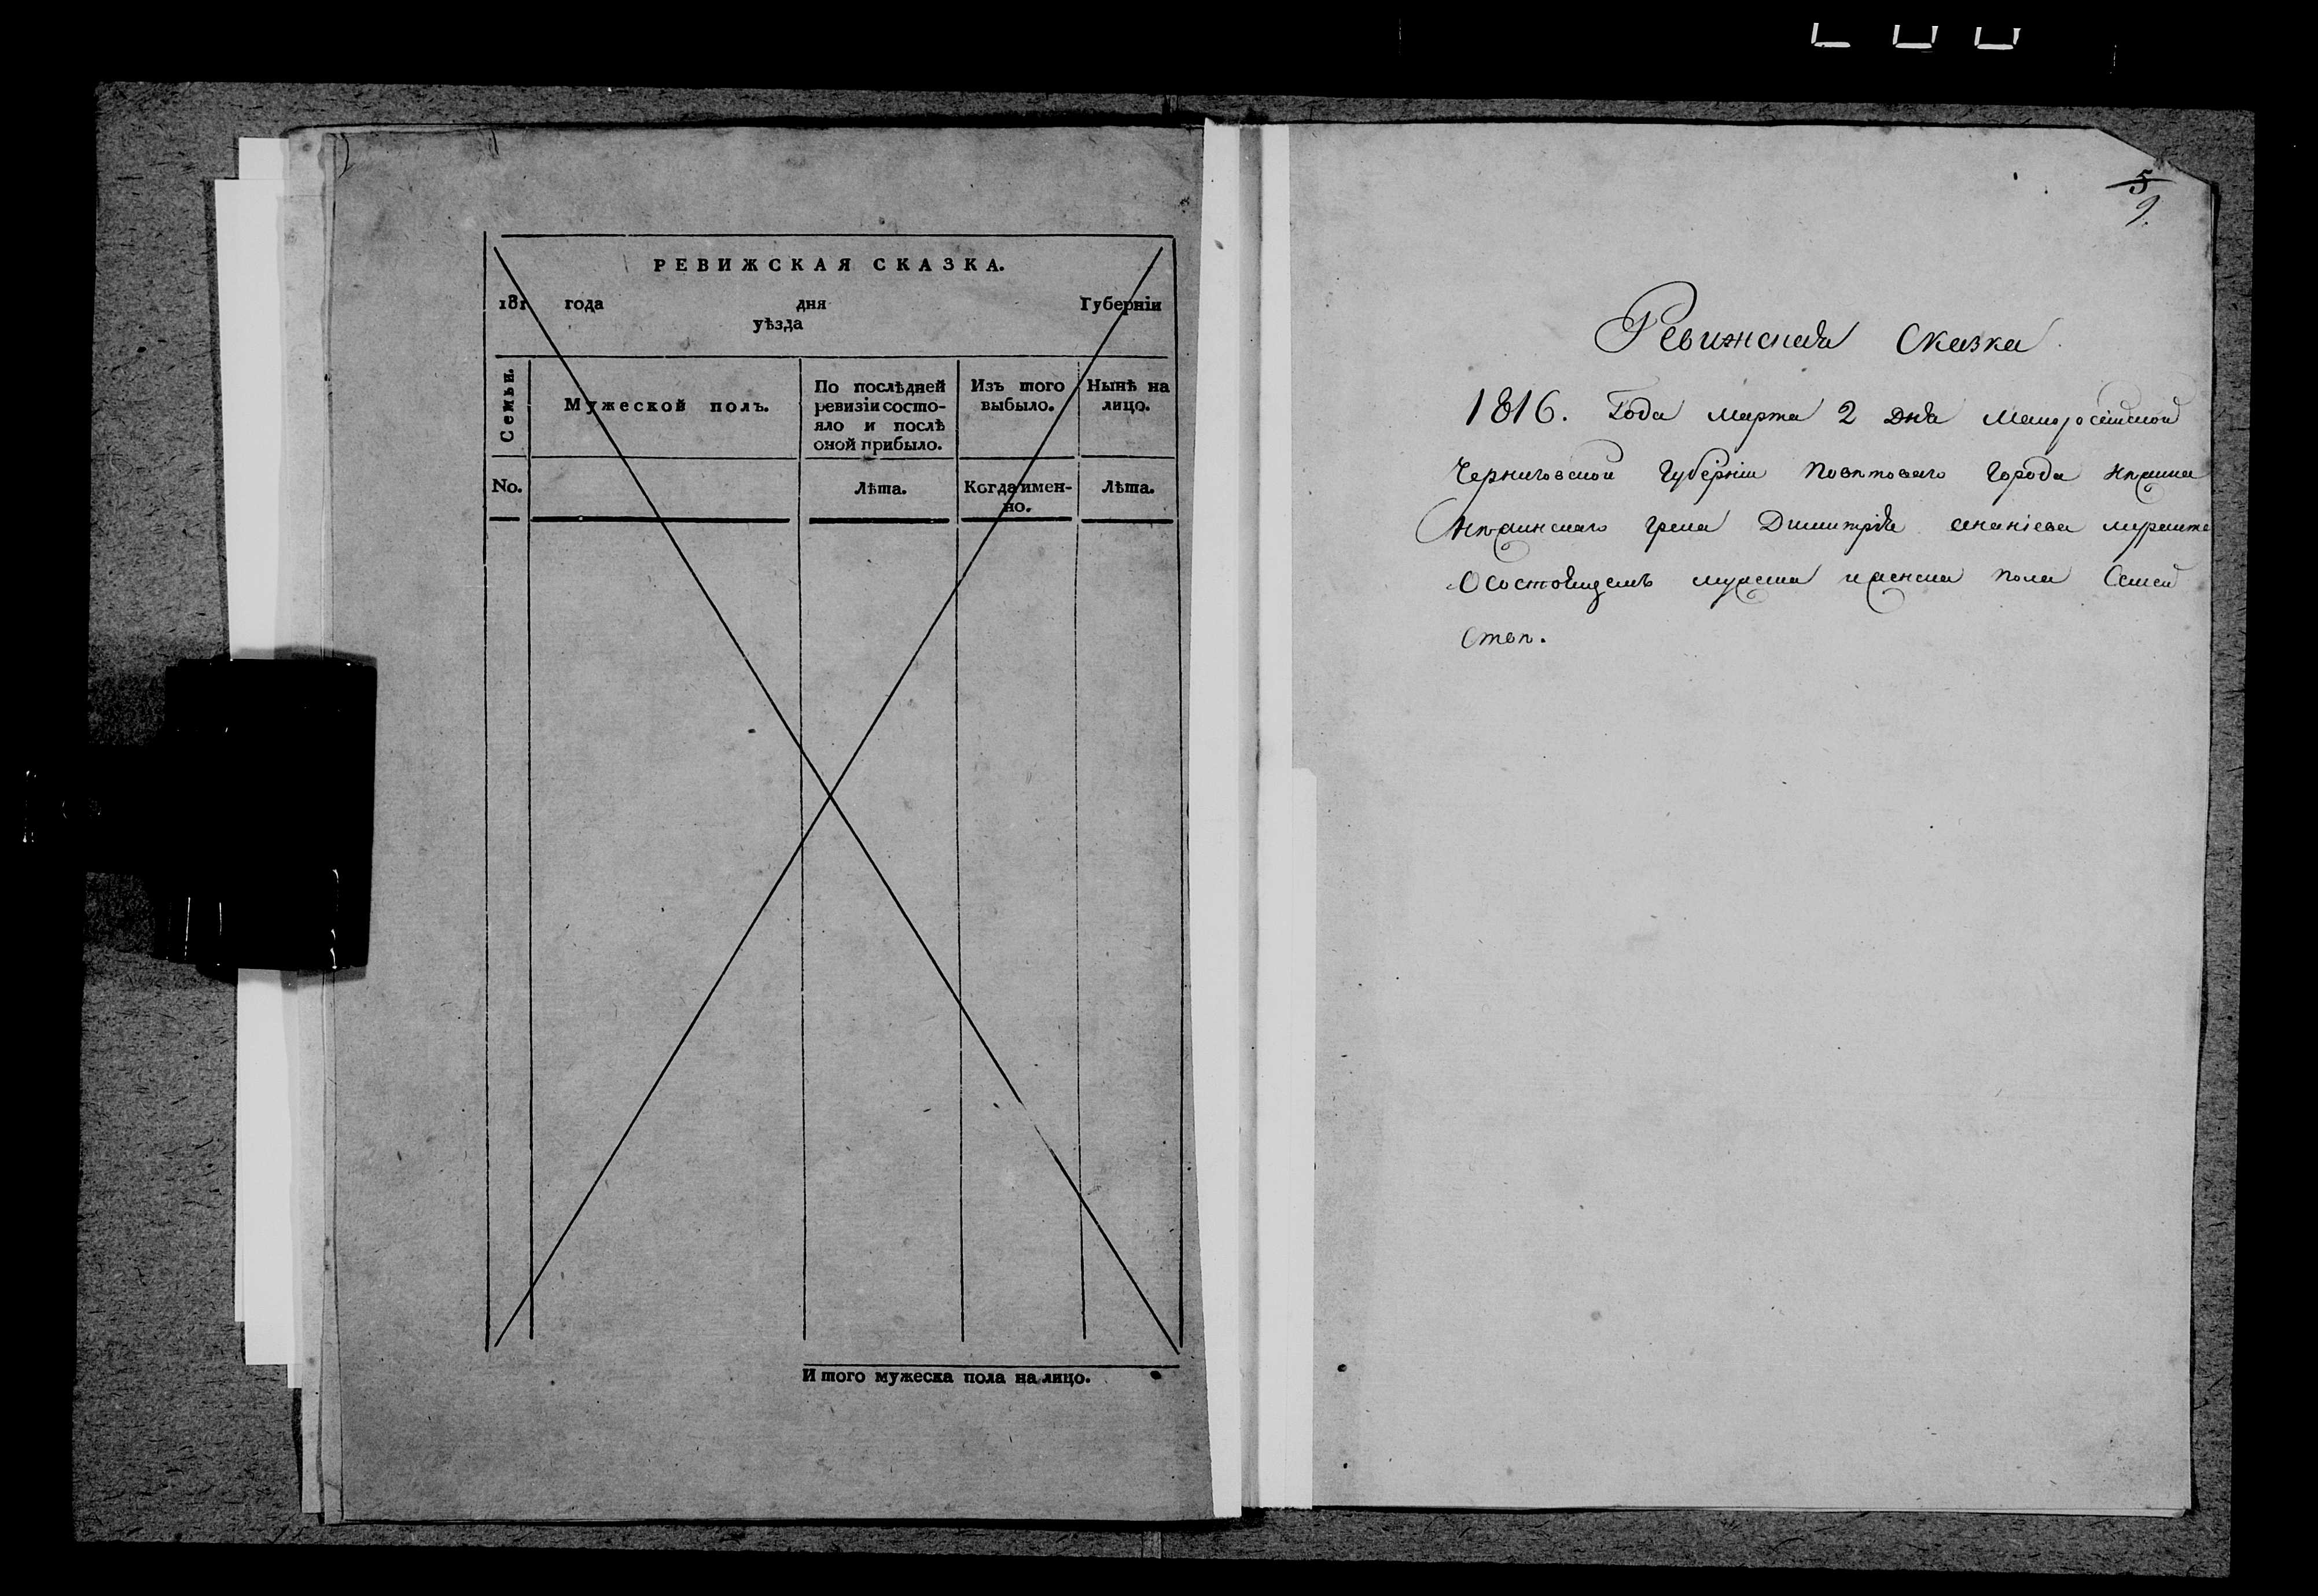 РЕВИЖСКАЯ СКАЗКА.
181 года дня Губерніи
уѣзда
Семьи.
Мужеской полъ.
По послѣдней
ревизіи состо-
яло и послѣ
оной прибыло.
Изъ того
выбыло.
Нынѣ на
лицо.
No.
Лѣта.
Когда имен-
но.
Лѣта.
И того мужеска пола на лицо.
5
9.
Ревижская Сказка
1816. Года Марта 2 дня Малоросійской
Черниговской Губерніи Поветоваго Города Нѣжина
Нѣжинскаго грека Димитрія ананіева
О состоящемъ мужеска и женска пола Семей
Стве.